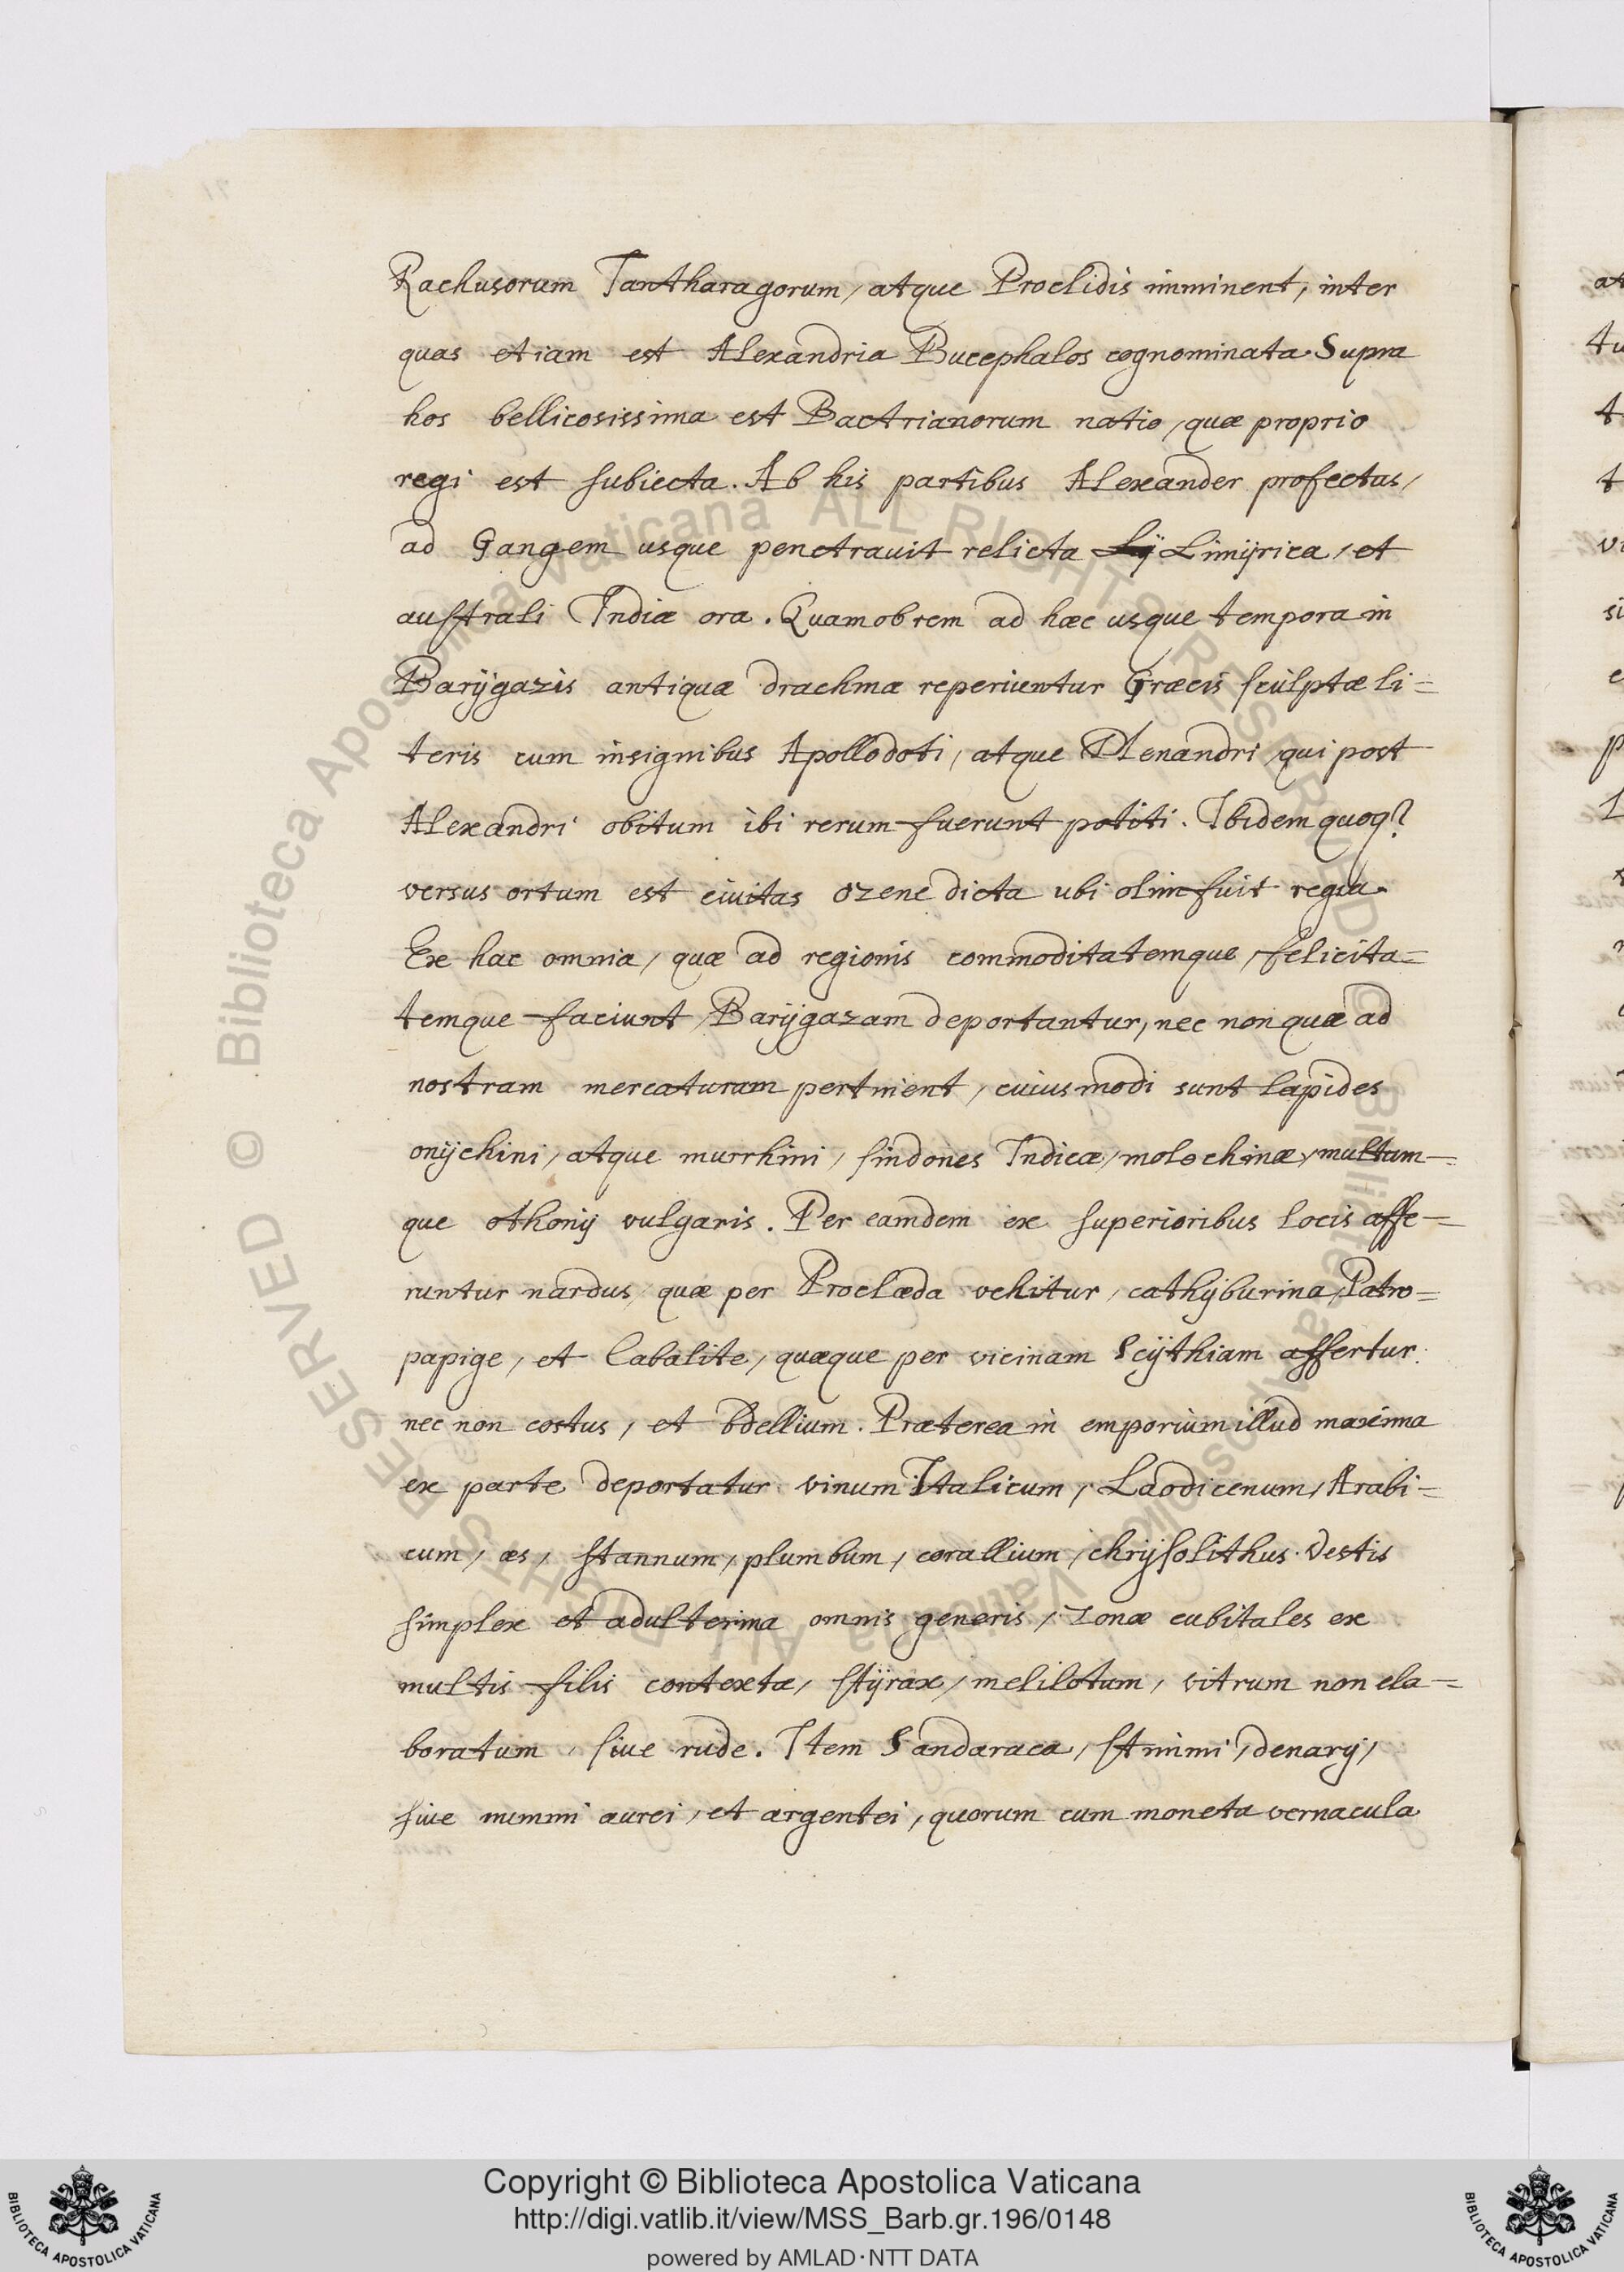 Rachusorum Tantharagorum, atque Proclidis imminent, inter
quas etiam est Alexandria Bucephalos cognominata. Supra
hos bellicosissima est Bactrianorum natio, quæ proprio
regi est subiecta. Ab his partibus Alexander profectus,
ad Gangem usque penetrauit relicta Lÿ Limÿrica, et
australi Indiæ ora. Quamobrem ad hæc usque tempora in
Barÿgazis antiquæ drachmæ reperiuntur Græcis sculptæ li=
teris cum insignibus Apollodoti, atque Menandri qui post
Alexandri obitum ibi rerum fuerunt potiti. Ibidem quoq?
versus ortum est ciuitas ozene dicta ubi olim fuit regia.
Ex hac omnia, quæ ad regionis commoditatemque, felicita=
temque faciunt, Barÿgazam deportantur, nec non quæ ad
nostram mercaturam pertinent, cuiusmodi sunt lapides
onÿchini, atque murrhini, sindones Indicæ, molochinæ, multum=
que othonij vulgaris. Per eamdem ex superioribus locis affe=
runtur nardus, quæ per Proclæda vehitur, cathÿburina, Patro=
papige, et Cabalite, quæque per vicinam Scÿthiam affertur.
nec non costus, et bdellium. Præterea in emporium illud maxima
ex parte deportatur vinum Italicum, Laodicenum, Arabi=
cum, æs, stannum, plumbum, corallium, chrÿsolithus. Vestis
simplex et adulterina omnis generis, zonæ cubitales ex
multis filis contextæ, stÿrax, melilotum, vitrum non ela=
boratum, siue rude. Item Sandaraca, stimmi, denarij,
siue nummi aurei, et argentei, quorum cum moneta vernacula
at
tu
t
t
vi
si
e
p
© Biblioteca Apostolica Vaticana ALL RIGHTS RESERVED © Biblioteca Apostolica Vaticana ALL RIGHTS RESERVED
BIBLIOTECA APOSTOLICA VATICANA
Copyright © Biblioteca Apostolica Vaticana
http://digi.vatlib.it/view/MSS_Barb.gr.196/0148
powered by AMLAD·NTT DATA
BIBLIOTECA APOSTOLICA VATICANA